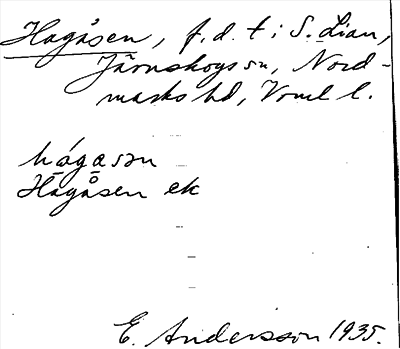 Hagåsen, f.d. t i S. Lian,
Järnskogs sn, Nord-
marks hd, Vrml l.
hágasən
Hagåsen ek
E. Andersson 1935.